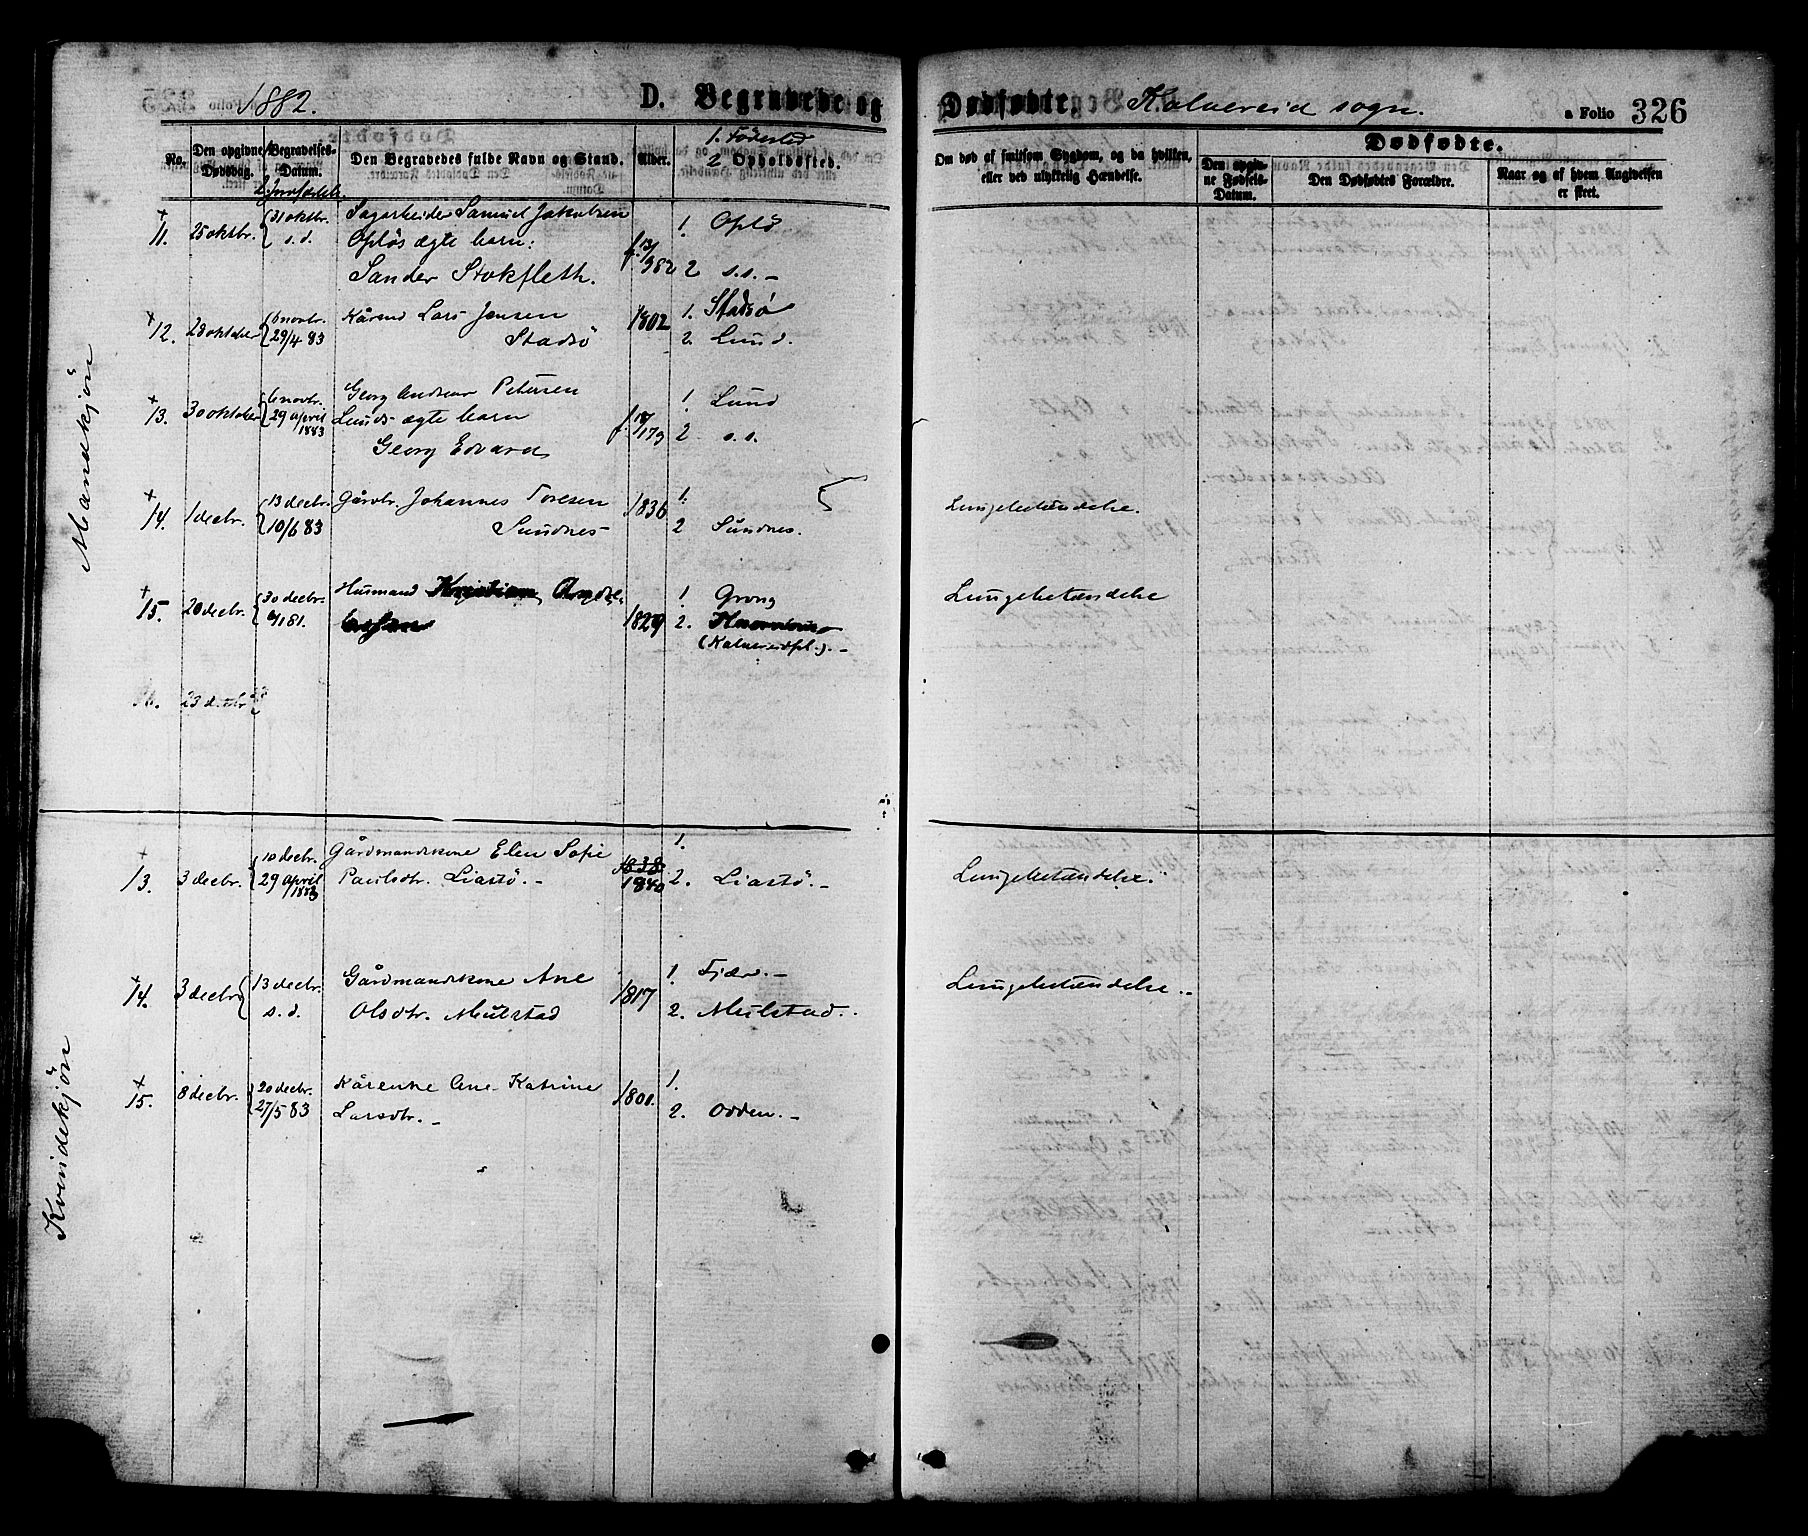 1882. D. Begravede og Dødfødte Kolvereid sogn. a Folio 326
No. Den opgivne Dødsdag. Begravelses-Datum. Den Begravedes fulde Navn og Stand. Alder. 1. Fødested 2 Opholdssted.
Om død af smitsom Sygdom, og da hvilken, eller ved ulykkelig Hændelse.
Dødfødte.
Den opgivne Fødsels-Datum. Den Dødfødtes Forældre. Naar og af hvem Angivelsen er skeet.
Mandkjøn
11. 25 oktbr. 31 oktbr. Sagarbeider Samuel Jakobsen 1. Oplø
s. d. Opløs ægte barn:
Sander Stokfleth. 2 s.s. –
12. 28 oktober 6 novbr. Kårmd Lars Jensen 1802 1. Stadsø
29/4 83 Stadsø 2. Lund.
13. 30 oktober 6 novbr. Georg Andreas Petersen 1. Lund
29 april 1883 Lunds ægte barn 2 s.s.
Georg Edvard
14. 1 decbr. 13 decbr. Gårdbr. Johannes Toresen 1836 1. Lungebetændelse.
10/6 83 Sundnes 2 Sundnes.
15. 20 decbr. 30 decbr. Husmand Kristian 1829 1. Grong Lungebetændelse
2.
(Kolvereidpl.). –
16. 23 decbr
13. 3 decbr. 10 decbr. Gårdmandskone Elen Sofie 1838 1.
29 april 1883 Paulsdtr. Liastø. – 1840 2. Liastø. – Lungebetændelse.
Kvindekjøn
14. 3 decbr 13 decbr. Gårdmandskone Ane 1817 1. Fjær. – Lungebetændelse. –
s. d. Olsdtr. Mulstad 2. Mulstad. –
15. 8 decbr. 20 decbr. Kårenke Ane Katrine 1801. 1.
27/5 83 Larsdtr. – 2. Odden. –